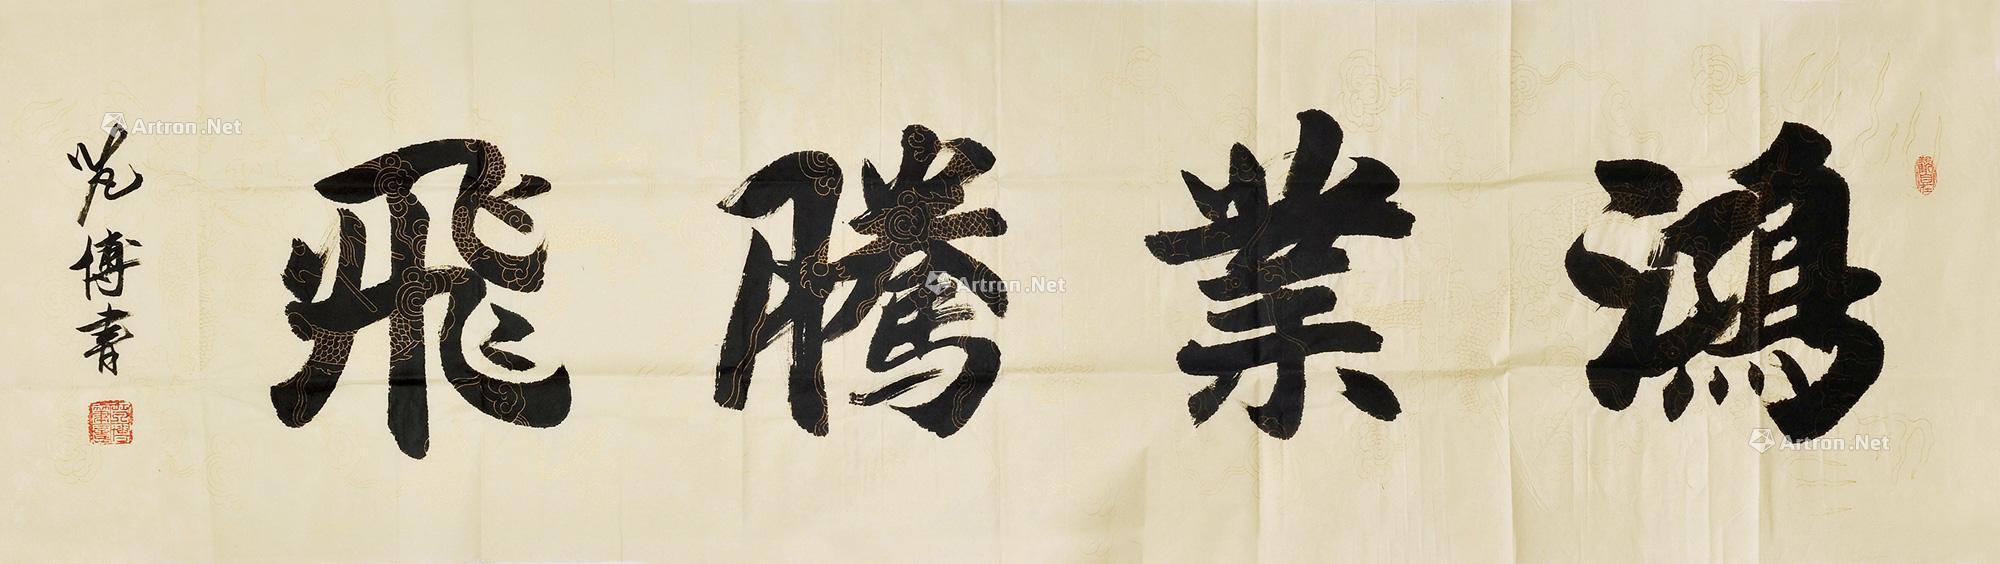 鴻業騰飛
范博書
Artron.Net
Artron.Net
Artron.Net